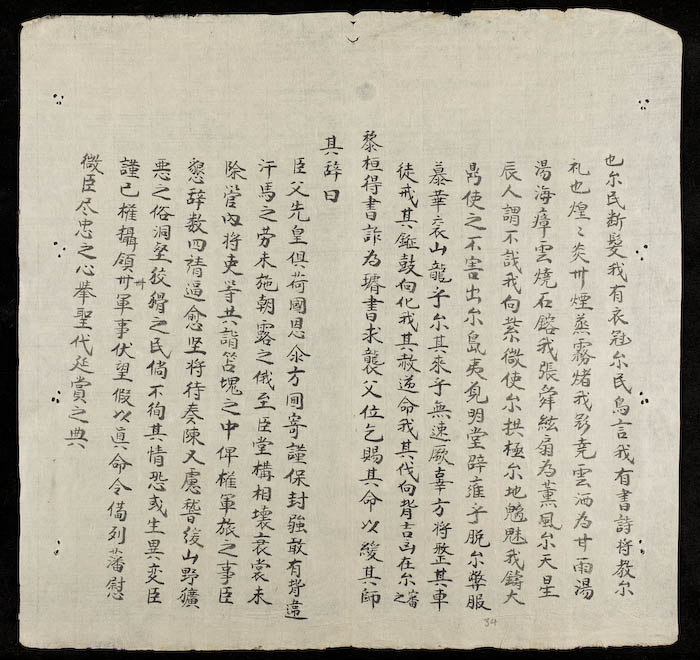 也尔民断髮我有衣冠尔民鳥言我有書詩将教尔
礼也煌〻炎卅煙蒸霧煮我彩尭雲洒為甘雨湯
湯海瘴雲燒石鎔我張舜絃扇為薰風尔天星
辰人謂不哉我向紫微使尔拱極尔地魑魅我鑄大
鼎使之不害出尔島夷覓明堂辟雍乎脱尔弊服
慕華衮山龍乎尔其来乎無速厥辜方将整其車
徒戒其鉦鼓向化我其赦逆命我其伐向背吉凶在尔審之
黎桓得書詐為璿書求襲父位乞賜其命以緩其師
其辞曰
臣父先皇俱荷國恩叅方圓寄謹保封強敢有背違
汗馬之劳未施朝露之俄至臣堂構相壞衰裳未
除管内将吏等共詣苫塊之中俾權軍旅之事臣
懇辞数四請逼愈坚将待奏陳又慮稽緩山野獷
悪之俗洞壑狡猾之民倘不徇其情恐或生異変臣
謹己權攝領卅軍事伏望假以真命令僃列藩慰
微臣尽忠之心举聖代延賞之典
34